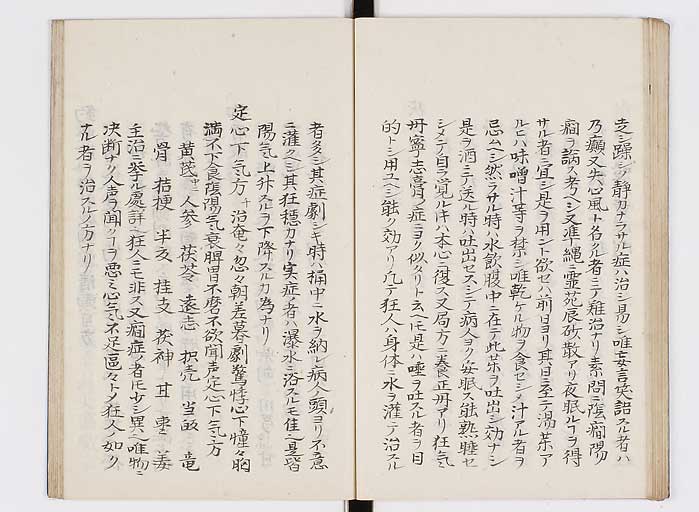 走シ躁シク静カナラサル症ハ治シ易シ唯妄言笑語スル者ハ
乃癲又失心風ト名クル者ニテ難治ナリ素問ニ陰癇陽
癇ヲ論ス考ヘシ又準縄ニ霊苑辰砂散アリ夜眠ルコヲ得
サル者ニ宜シ是ヲ用ント欲セハ前日ヨリ其日ニ至テ湯茶ア
ルヒハ味噌汁等ヲ禁シ唯乾ケル物ヲ食セシメ汁アル者ヲ
忌ムヘシ然ラサル時ハ水飲腹中ニ在テ此薬ヲ吐出シ効ナシ
是ヲ酒ニテ送ル時ハ吐出セスシテ病人ヨク安眠ス能熟睡セ
シメテ自ラ覚ルキハ本心ニ復ス又局方ニ養正丹アリ狂気
丹寧志膏ノ症ニヨク似タリト云ヘ𪜈是ハ唾ヲ吐スル者ヲ目
的トシ用ユヘシ能ク効アリ凡テ狂人ハ身体ニ水ヲ灌テ治スル
者多シ其症劇シキ時ハ桶中ニ水ヲ納レ病人ノ頭ヨリ不意
ニ灌クヘシ其狂穏カナリ実症ノ者ハ瀑水ニ浴スルモ佳シ是皆
陽気上升スルヲ下降スルカ為ナリ
定心下気方 治奄々忽々朝差暮劇驚悸心下憧々胸
満不下食陰陽気衰脾胃不磨不欲聞声定心下気方
黄芪 人参 茯苓 遠志 枳壳 当皈 竜
骨 桔梗 半夏 桂支 茯神 甘 棗 姜
主治ニ挙ル處詳ヘ狂人ニモ非ス又癇症ノ者𪜈少シ異ヘ唯物ニ
決断ナク人声ヲ聞クコヲ悪ミ心気不足區々トメ狂人ノ如ク
ナル者ヲ治スルノ方ナリ